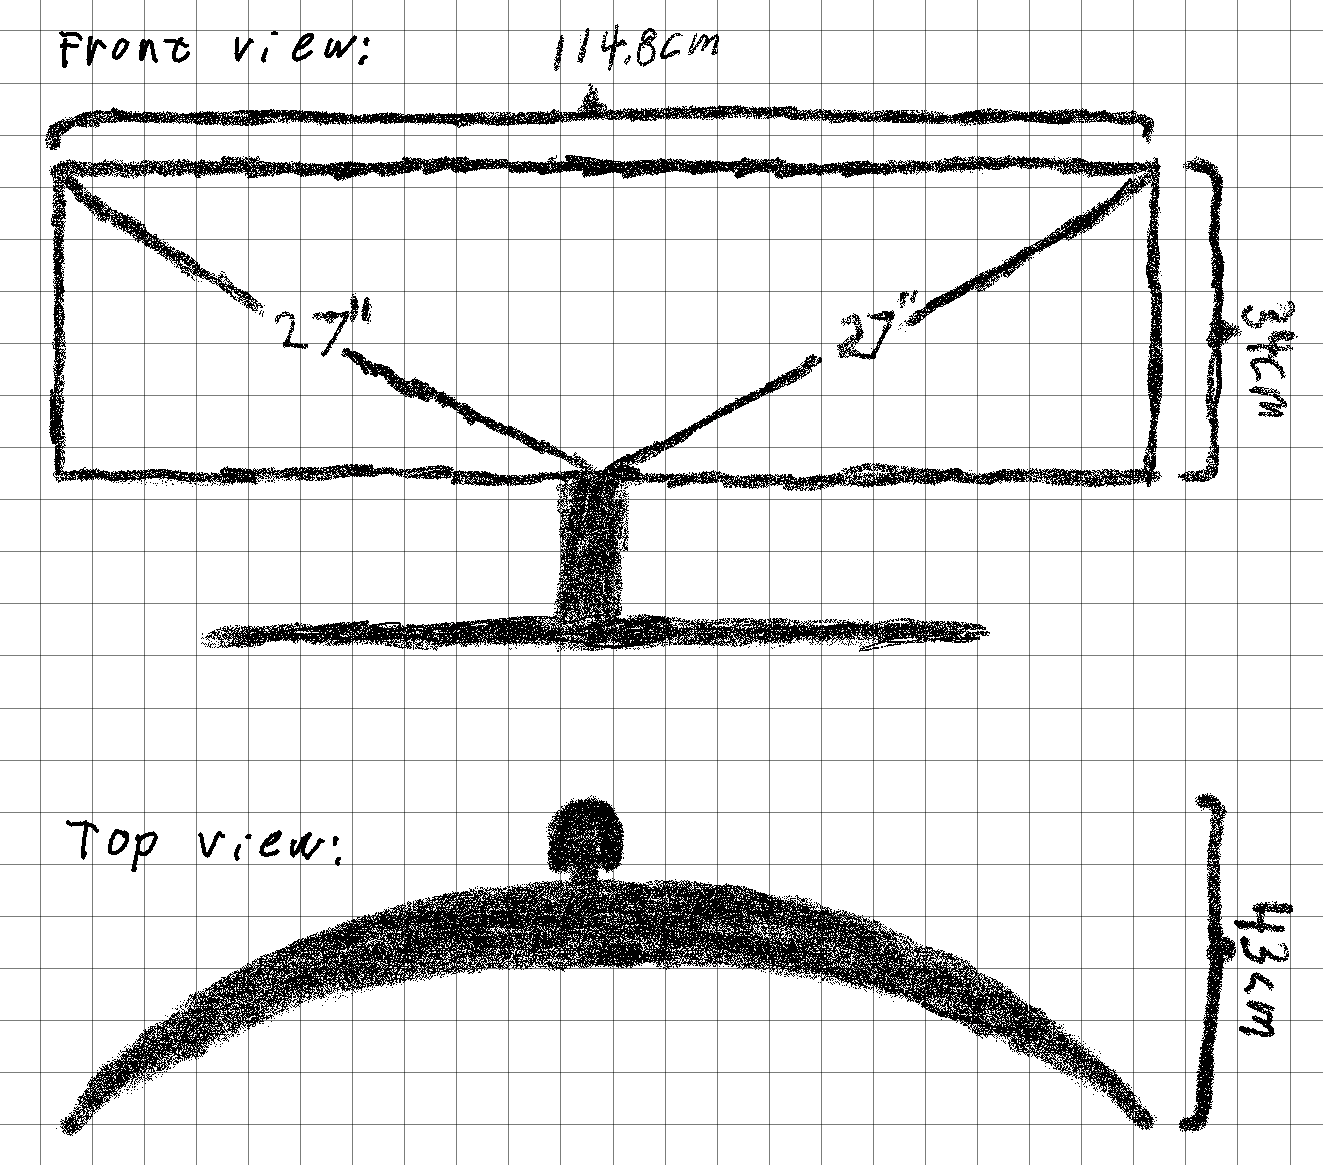 Front view:
114.8cm
27"
27"
34cm
Top view:
43cm